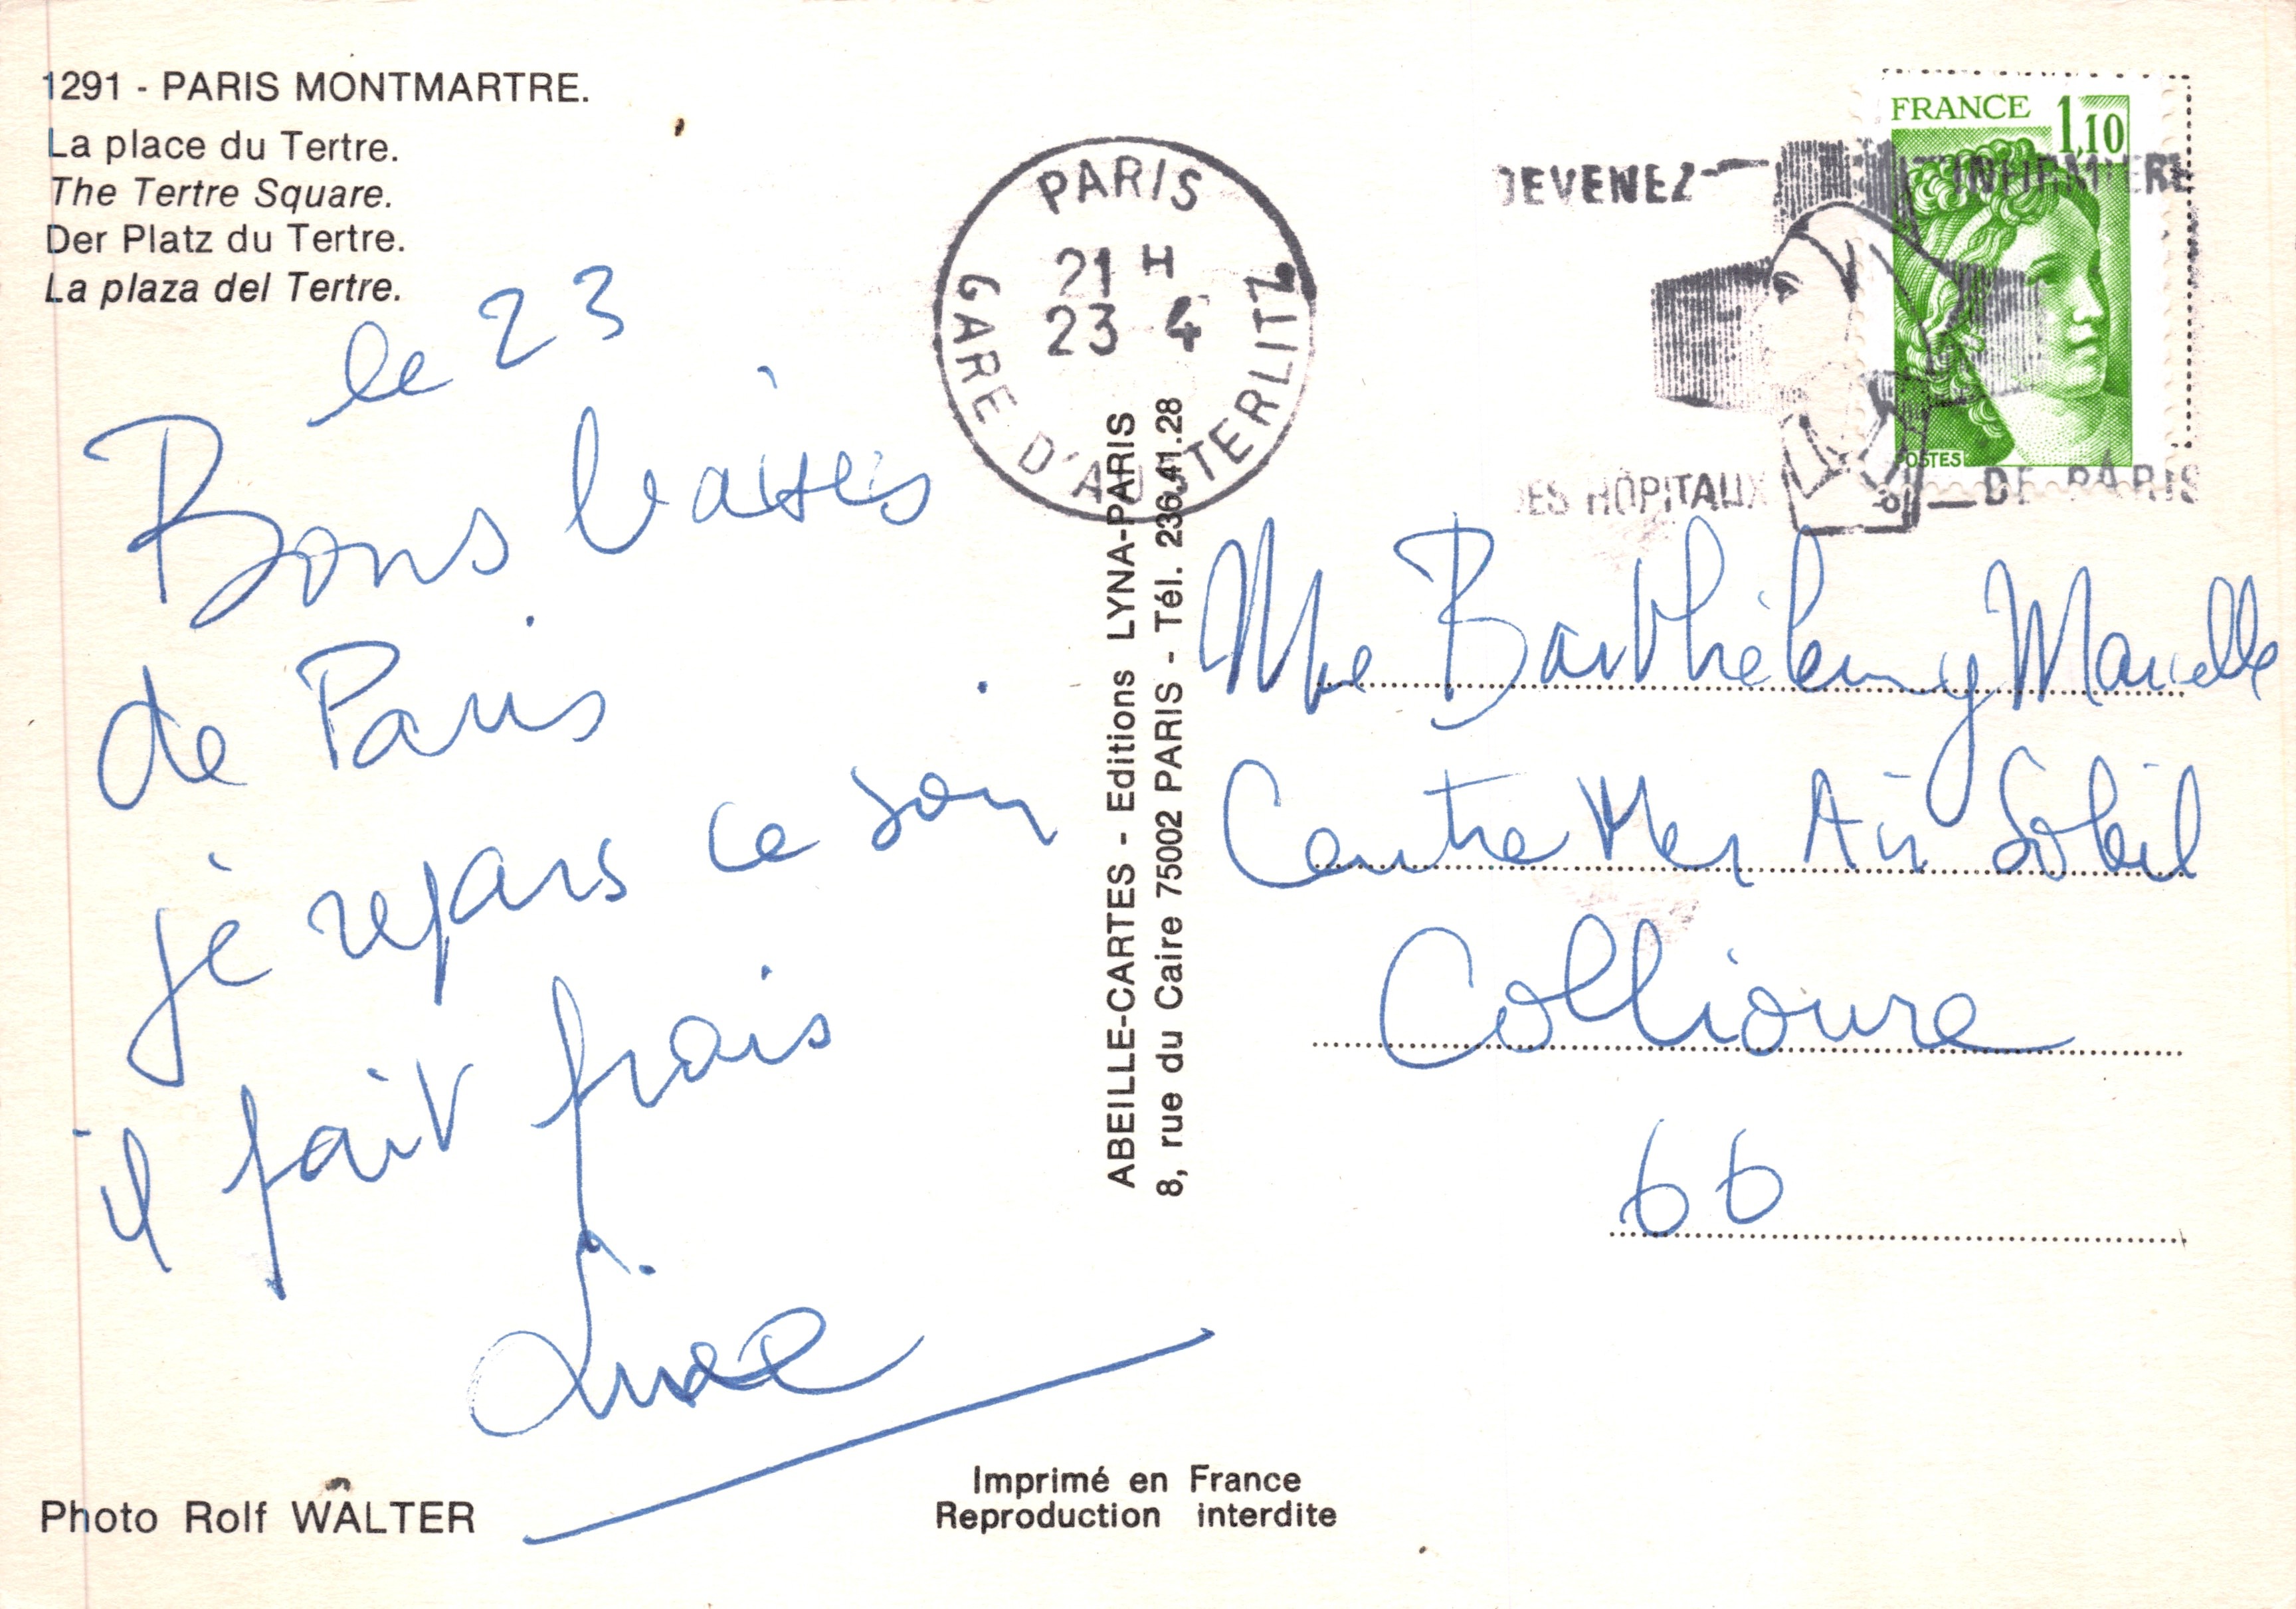 1291 - PARIS MONTMARTRE.
La place du Tertre.
The Tertre Square.
Der Platz du Tertre.
La plaza del Tertre.
le 23
Bons baisers
de Paris
je repars ce soir
il fait frais
Photo Rolf WALTER
PARIS
21 H
23 4
GARE D'AUSTERLITZ
ABEILLE-CARTES - Editions LYNA-PARIS
8, rue du Caire 75002 PARIS - Tél. 236.41.28
Imprimé en France
Reproduction interdite
FRANCE 1,10
POSTES
DEVENEZ INFIRMIERE
DES HÔPITAUX DE PARIS
Mme Barthélemy Marcelle
Centre Mer Air Soleil
Collioure
66